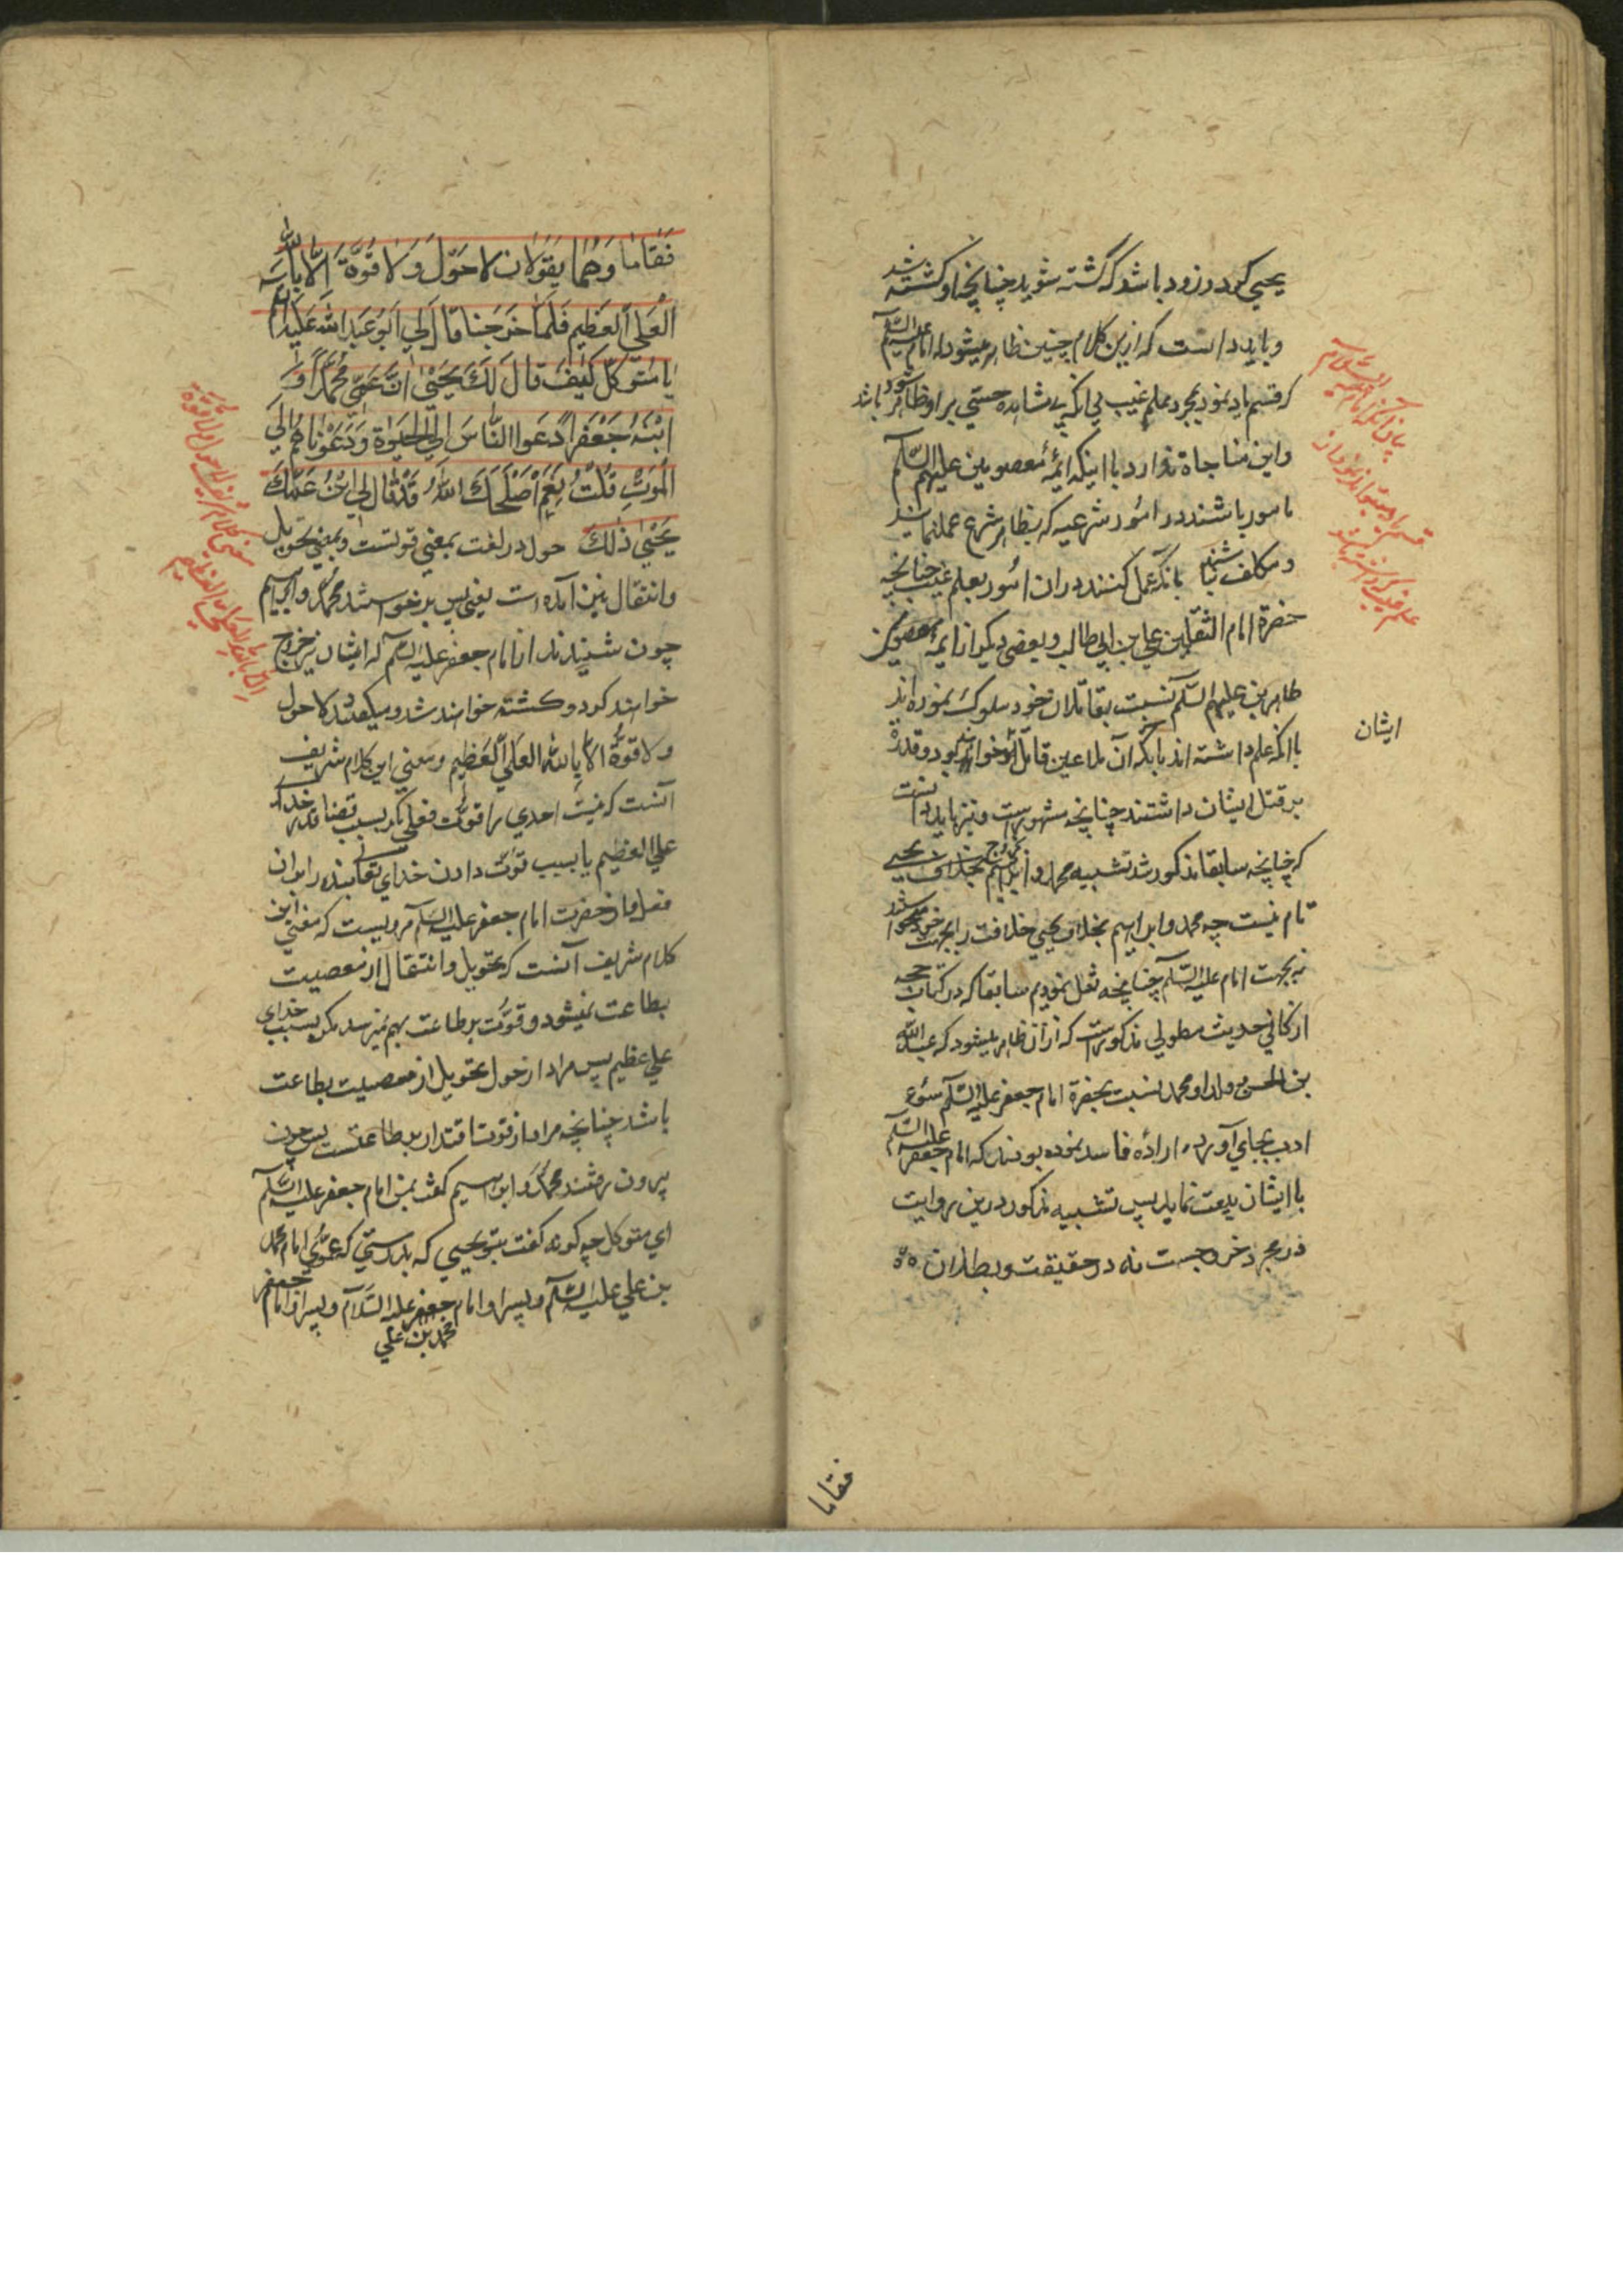 یحیی کرد و زود باشد که کشته شوید چنانچه او کشته شد
و باید دانست که ازین کلام چنین ظاهر میشود که امام علیه السلم
که قسم یاد نمود بمجرد علم غیب بی آنکه بمشاهده حسی بر او ظاهر شود باشد
و این منافاة ندارد با اینکه ائمهٔ معصومین علیهم السلم
مامور باشند در امور شرعیه که بظاهر شرع عمل نمایند
و مکلف نباشند بانکه عمل کنند دران امور بعلم غیب چنانچه
حضرة امام الثقلین علی بن ابی طالب و بعضی دیکر از ایمهٔ معصومین
طاهرین علیهم السلم نسبت بقاتلان خود سلوک نموده اند
با انکه علم داشته اند بانکه آن ملاعین قاتل خواهند بود و قدرة
ایشان
بر قتل ایشان داشتند چنانچه مشهور است و نیز باید دانست
که چنانچه سابقا مذکور شد تشبیه محمد و ابراهیم بخروج یحیی
تام نیست چه محمد و ابراهیم بخلاف یحیی خلافت را بجهت خود میخواستند
نه بجهت امام علیه السلم چنانچه نقل نمودیم سابقا که در کتاب حجه
از کافی حدیث مطولی مذکور است که از آن ظاهر میشود که عبد الله
بن الحسن و ولد او محمد نسبت بحضرة امام جعفر علیه السلم سوء
ادب بجای آورده ارادهٔ فاسد نموده بودند که امام جعفر علیه السلم
با ایشان بیعت نماید پس تشبیه مذکور درین روایت
در مجرد خروجست نه در حقیقت و بطلان
فقاما
فَقَامَا وَهُمَا يَقُولَانِ لَا حَوْلَ وَلَا قُوَّةَ اِلَّا بِاللهِ
الْعَلِيِّ الْعَظِيمِ فَلَمَّا خَرَجْنَا قَالَ لِي اَبُو عَبْدِ اللهِ عَلَيْهِ السَّلَامُ
يَا مُتَوَكِّلُ كَيْفَ قَالَ لَكَ يَحْيٰى اِنَّ عَمِّي مُحَمَّدًا وَ
ابْنَهُ جَعْفَرًا دَعَوَا النَّاسَ اِلَى الْحَيٰوةِ وَدَعَوْنَاهُمْ اِلَى
الْمَوْتِ قُلْتُ نَعَمْ اَصْلَحَكَ اللهُ قَدْ قَالَ لِي ابْنُ عَمِّكَ
يَحْيٰى ذٰلِكَ حول در لغت بمعنی قوتست و بمعنی تحویل
و انتقال نیز آمده است یعنی پس برخواستند محمد و ابراهیم
چون شنیدند از امام جعفر علیه السلم که ایشان نیز خروج
خواهند کرد و کشته خواهند شد و میکفتند که لا حول
ولا قوة الا بالله العلي العظيم و معنی این کلام شریف
آنست که نیست احدی را قوت فعلی مکر بسبب قضا و قدر خدای
علی العظیم یا بسبب قوت دادن خدای تعالی بنده را بران
فعل و از حضرت امام جعفر علیه السلم مرویست که معنی این
کلام شریف آنست که تحویل و انتقال از معصیت
بطاعت نمیشود و قوت بر طاعت بهم نمیرسد مکر بسبب خدای
علی عظیم پس مراد از حول تحویل از معصیت بطاعت
باشد چنانچه مراد از قوت اقتدار بر طاعتست پس چون
بیرون رفتند محمد و ابراهیم کفت بمن امام جعفر علیه السلم
ای متوکل چه کونه کفت بتو یحیی که بدرستی که عموی امام محمد
بن علی علیه السلم و پسر او امام جعفر علیه السلام و پسر او امام جعفر
محمد بن علی